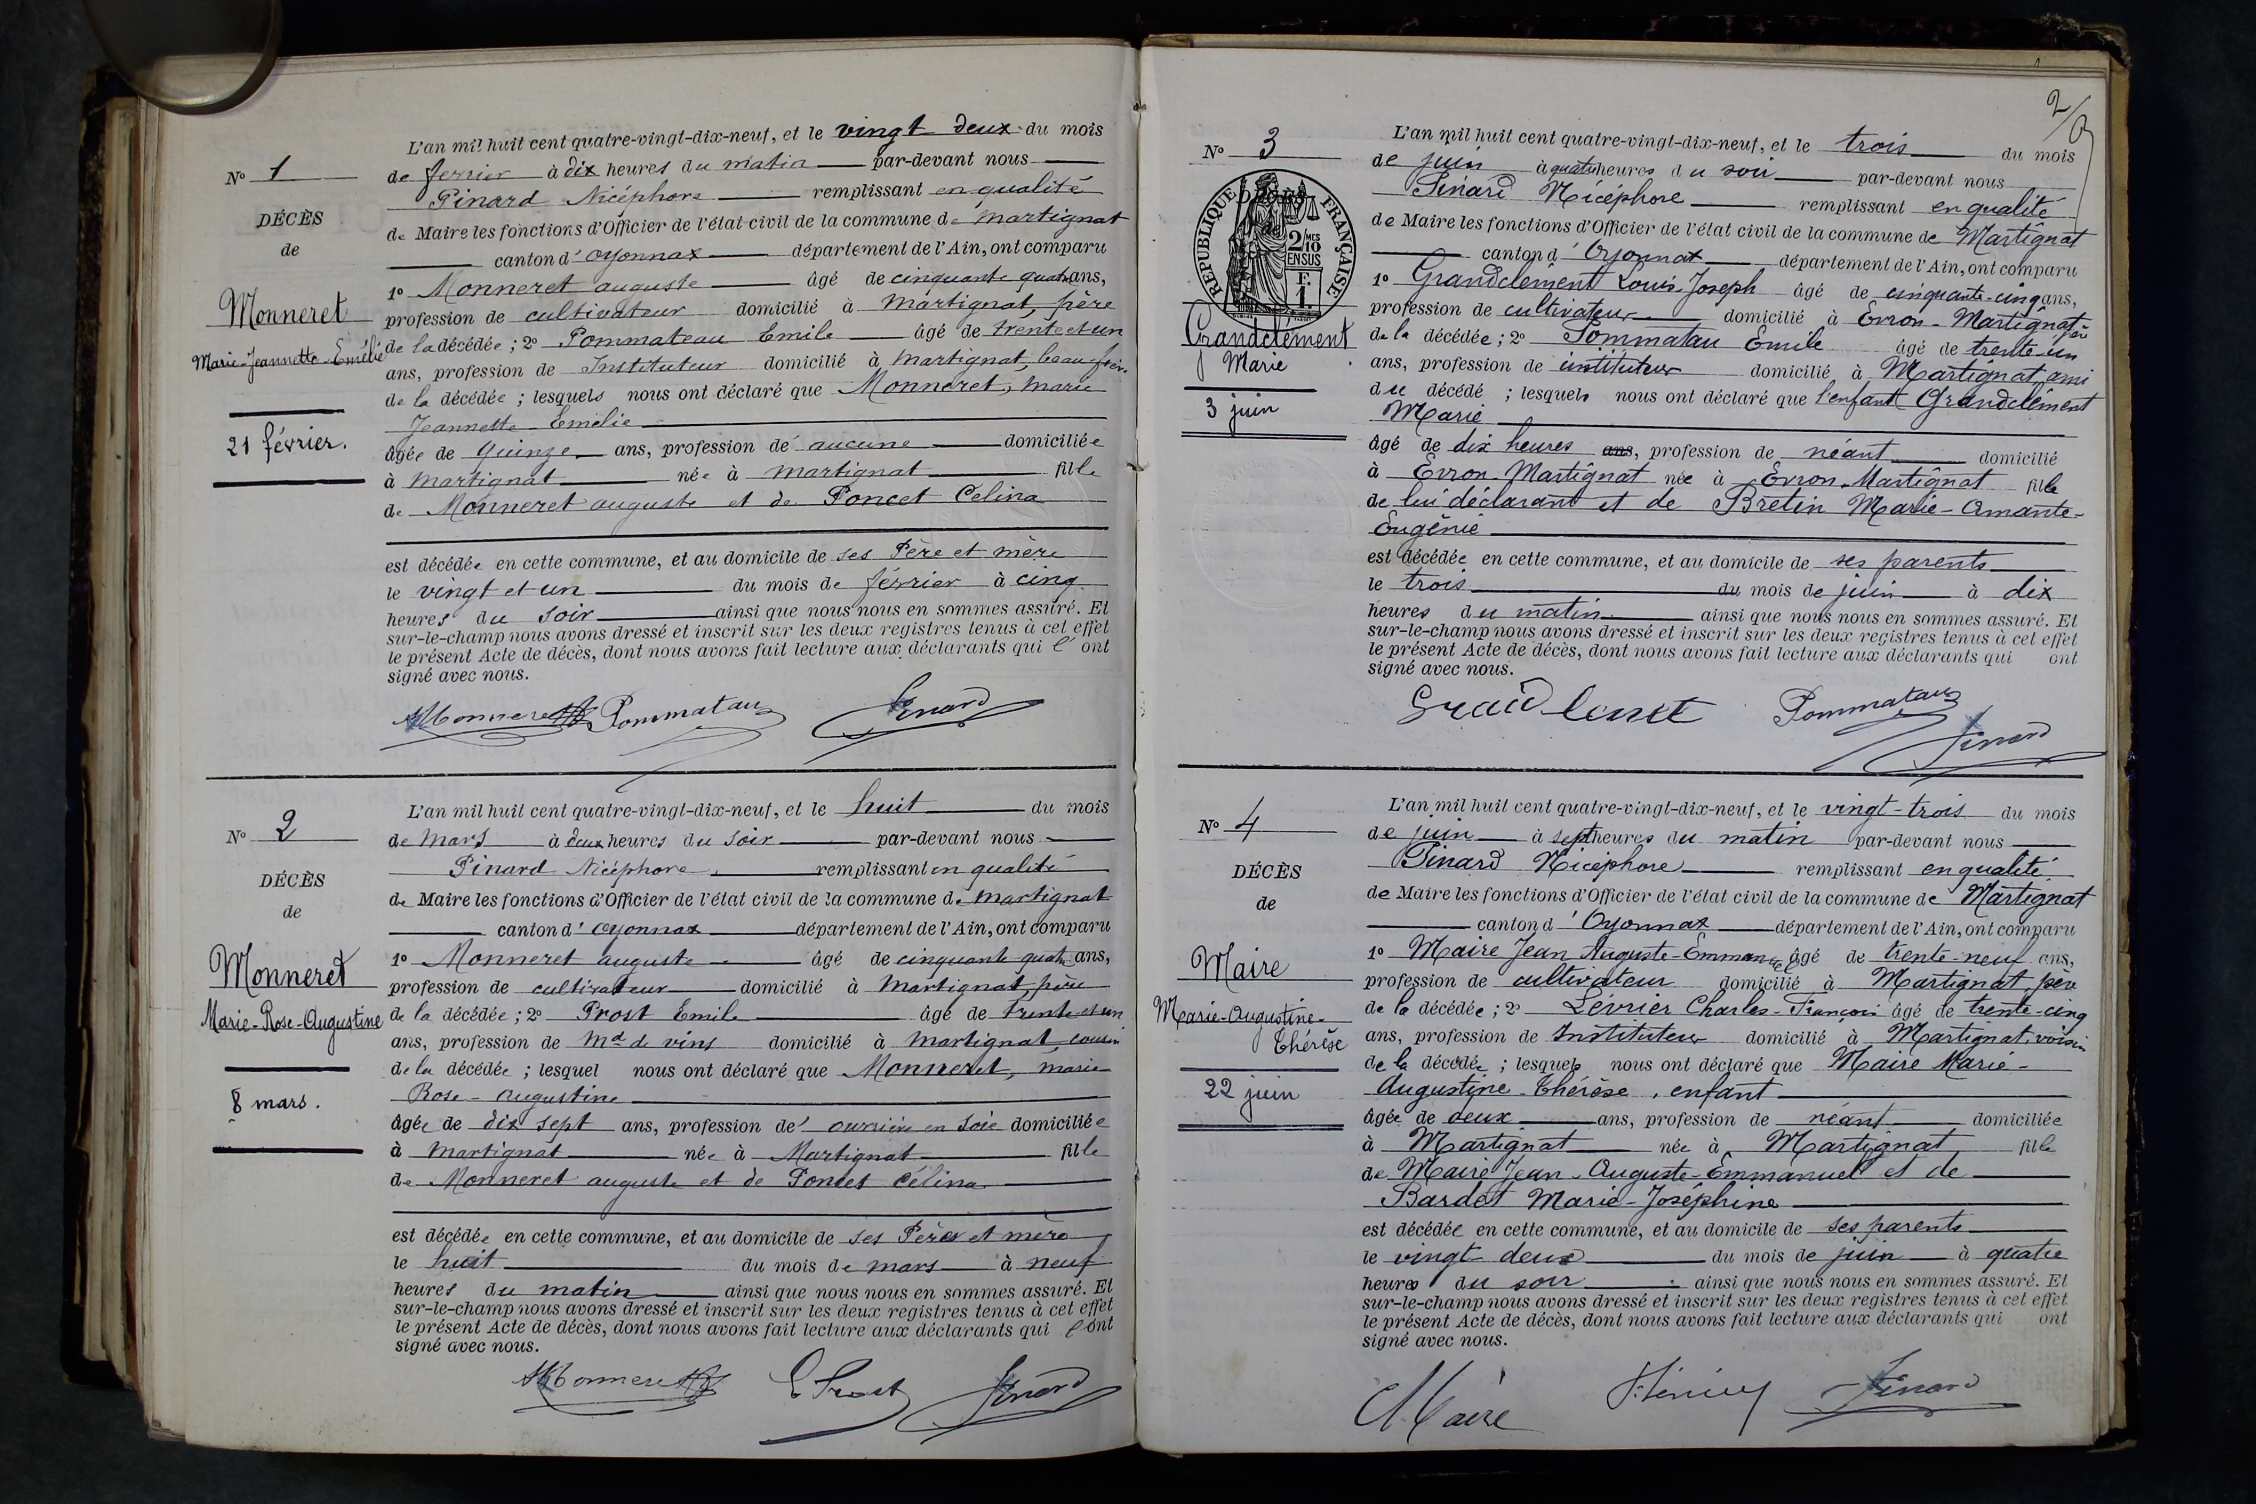 N° 1
DÉCÈS
de
Monneret
Marie-Jeannette-Emélie
21 février.
L'an mil huit cent quatre-vingt-dix-neuf, et le vingt deux du mois
de ferrier à dix heures du matin par-devant nous
Pinard Nicéphore remplissant en qualité
de Maire les fonctions d'Officier de l'état civil de la commune de Martignat
canton d'Oyonnax département de l'Ain, ont comparu
1° Monneret auguste âgé de cinquante quatre ans,
profession de cultivateur domicilié à Martignat, père
de la décédée ; 2° Pommateau Emile âgé de trente et un
ans, profession de Instituteur domicilié à Martignat, beau frère
de la décédée ; lesquels nous ont déclaré que Monneret, marie
Jeannette Emélie
âgée de quinze ans, profession de aucune domiciliée
à Martignat née à Martignat fille
de Monneret auguste et de Poncet Celina
est décédée en cette commune, et au domicile de ses Père et mère
le vingt et un du mois de février à cinq
heures du soir ainsi que nous nous en sommes assuré. Et
sur-le-champ nous avons dressé et inscrit sur les deux registres tenus à cet effet
le présent Acte de décès, dont nous avons fait lecture aux déclarants qui l' ont
signé avec nous.
Monneret Pommatau Pinard
N° 2
DÉCÈS
de
Monneret
Marie-Rose-Augustine
8 mars.
L'an mil huit cent quatre-vingt-dix-neuf, et le huit du mois
de mars à deux heures du soir par-devant nous
Pinard Nicéphore remplissant en qualité
de Maire les fonctions d'Officier de l'état civil de la commune de Martignat
canton d'Oyonnax département de l'Ain, ont comparu
1° Monneret auguste âgé de cinquante quatre ans,
profession de cultivateur domicilié à Martignat, père
de la décédée ; 2° Prost Emile âgé de trente et un
ans, profession de Md de vins domicilié à Martignat, cousin
de la décédée ; lesquel nous ont déclaré que Monneret, marie
Rose - augustine
âgée de dix sept ans, profession de ouvrière en soie domiciliée
à Martignat née à Martignat fille
de Monneret auguste et de Poncet Célina
est décédée en cette commune, et au domicile de ses Père et mère
le huit du mois de mars à neuf
heures du matin ainsi que nous nous en sommes assuré. Et
sur-le-champ nous avons dressé et inscrit sur les deux registres tenus à cet effet
le présent Acte de décès, dont nous avons fait lecture aux déclarants qui l'ont
signé avec nous.
Monneret E Prost Pinard
2
N° 3
RÉPUBLIQUE FRANÇAISE
2/10 MES
EN SUS
F.
1
Grandclément
Marie
3 juin
L'an mil huit cent quatre-vingt-dix-neuf, et le trois du mois
de juin à quatre heures du soir par-devant nous
Pinard Nicéphore remplissant en qualité
de Maire les fonctions d'Officier de l'état civil de la commune de Martignat
canton d'Oyonnax département de l'Ain, ont comparu
1° Grandclément Louis-Joseph âgé de cinquante-cinq ans,
profession de cultivateur domicilié à Evron-Martignat père
de la décédée ; 2° Pommatau Emile âgé de trente-un
ans, profession de instituteur domicilié à Martignat, ami
du décédé ; lesquels nous ont déclaré que l'enfant Grandclément
Marie
âgé de dix heures ans, profession de néant domicilié
à Evron-Martignat née à Evron-Martignat fille
de lui déclarant et de Bretin Marie-Amante-
Eugénie
est décédée en cette commune, et au domicile de ses parents
le trois du mois de juin à dix
heures du matin ainsi que nous nous en sommes assuré. Et
sur-le-champ nous avons dressé et inscrit sur les deux registres tenus à cet effet
le présent Acte de décès, dont nous avons fait lecture aux déclarants qui ont
signé avec nous.
Pommatau
Pinard
N° 4
DÉCÈS
de
Maire
Marie-Augustine-
Thérèse
22 juin
L'an mil huit cent quatre-vingt-dix-neuf, et le vingt-trois du mois
de juin à sept heures du matin par-devant nous
Pinard Nicéphore remplissant en qualité
de Maire les fonctions d'Officier de l'état civil de la commune de Martignat
canton d'Oyonnax département de l'Ain, ont comparu
1° Maire Jean Auguste-Emmanuel âgé de trente-neuf ans,
profession de cultivateur domicilié à Martignat, père
de la décédée ; 2° Lévrier Charles-François âgé de trente-cinq
ans, profession de Instituteur domicilié à Martignat, voisin
de la décédée ; lesquels nous ont déclaré que Maire Marie-
Augustine-Thérèse, enfant
âgée de deux ans, profession de néant domiciliée
à Martignat née à Martignat fille
de Maire Jean-Auguste-Emmanuel et de
Bardet Marie-Joséphine
est décédée en cette commune, et au domicile de ses parents
le vingt-deux du mois de juin à quatre
heures du soir ainsi que nous nous en sommes assuré. Et
sur-le-champ nous avons dressé et inscrit sur les deux registres tenus à cet effet
le présent Acte de décès, dont nous avons fait lecture aux déclarants qui ont
signé avec nous.
Maire Pinard